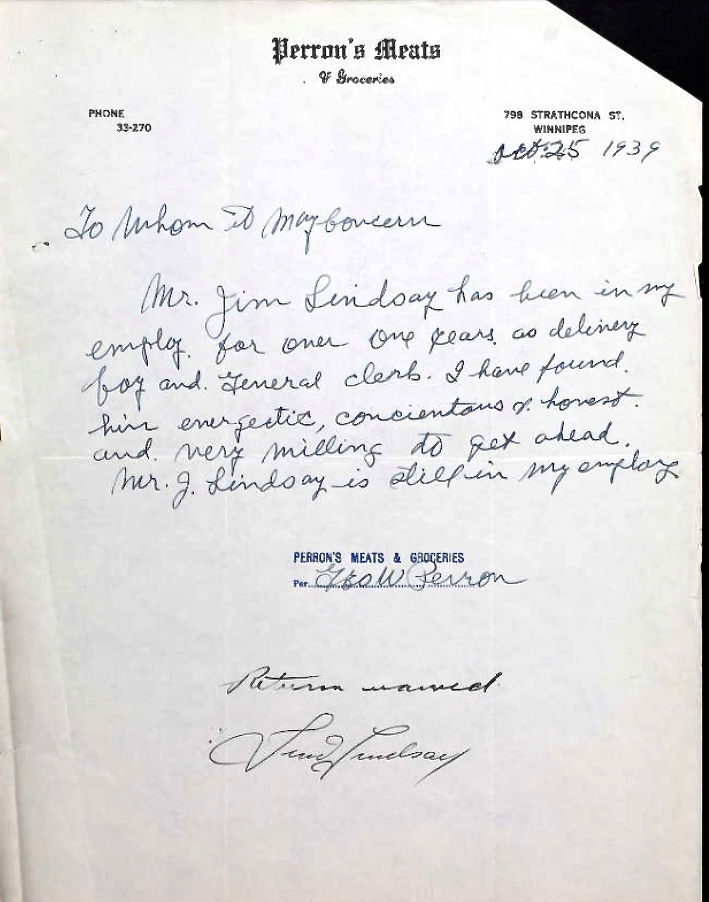 Perron's Meats
& Groceries
PHONE
33-270
798 STRATHCONA ST.
WINNIPEG
Oct. 25 1939
To Whom It May Concern
Mr. Jim Lindsay has been in my
employ. for over one years. as delivery
boy and. General clerk. I have found.
him energetic, concientous & honest.
and. very willing to get ahead.
Mr. J. Lindsay is still in my employ
PERRON'S MEATS & GROCERIES
Per. Geo W Perron
Return waived
Jim Lindsay